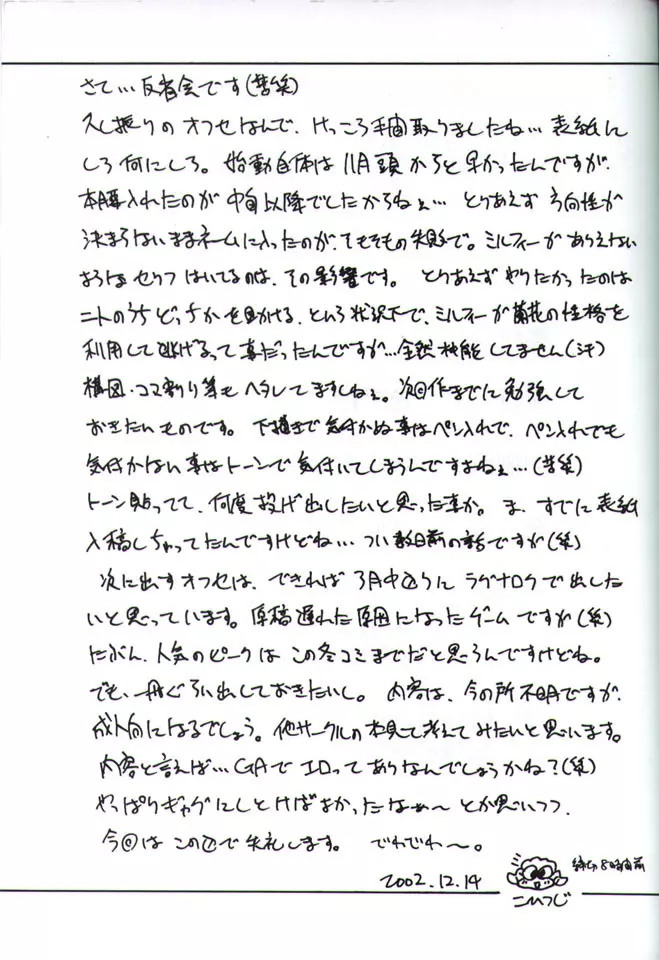 さて… 反省会です(苦笑)
久し振りのオフセなんで、けっこう手間取りましたね… 表紙に
しろ何にしろ。 始動自体は11月頭からと早かったんですが、
本腰入れたのが中旬以降でしたからねぇ… とりあえず方向性が
決まらないままネームに入ったのが、そもそもの失敗で。ミルフィーがありえない
ようなセリフはいてるのは、その影響です。 とりあえずやりたかったのは
ニトのうちどっちかを助ける、という状況下で、ミルフィーが蘭花の性格を
利用して逃げるって事だったんですが…全然機能してません(汗)
構図・コマ割り等もヘタレてますしねぇ。次回作までに勉強して
おきたいものです。 下描きで気付かぬ事はペン入れで、ペン入れでも
気付かない事はトーンで気付いてしまうんですよねぇ…(苦笑)
トーン貼ってて、何度投げ出したいと思った事か。 ま、すでに表紙
入稿しちゃってたんですけどね… つい数日前の話ですが(笑)
次に出すオフセは、できれば3月中辺りにラグナロクで出した
いと思っています。原稿遅れた原因になったゲームですが(笑)
たぶん、人気のピークはこの冬コミまでだと思うんですけどね。
でも、一冊ぐらい出しておきたいし。 内容は、今の所不明ですが、
成人向になるでしょう。他サークルの本見て考えてみたいと思います。
内容と言えば… GAでエロってありなんでしょうかね?(笑)
やっぱりギャグにしとけばよかったなぁ〜とか思いつつ、
今回はこの辺で失礼します。 でわでわ〜。
2002.12.14
締切8時間前
こひつじ